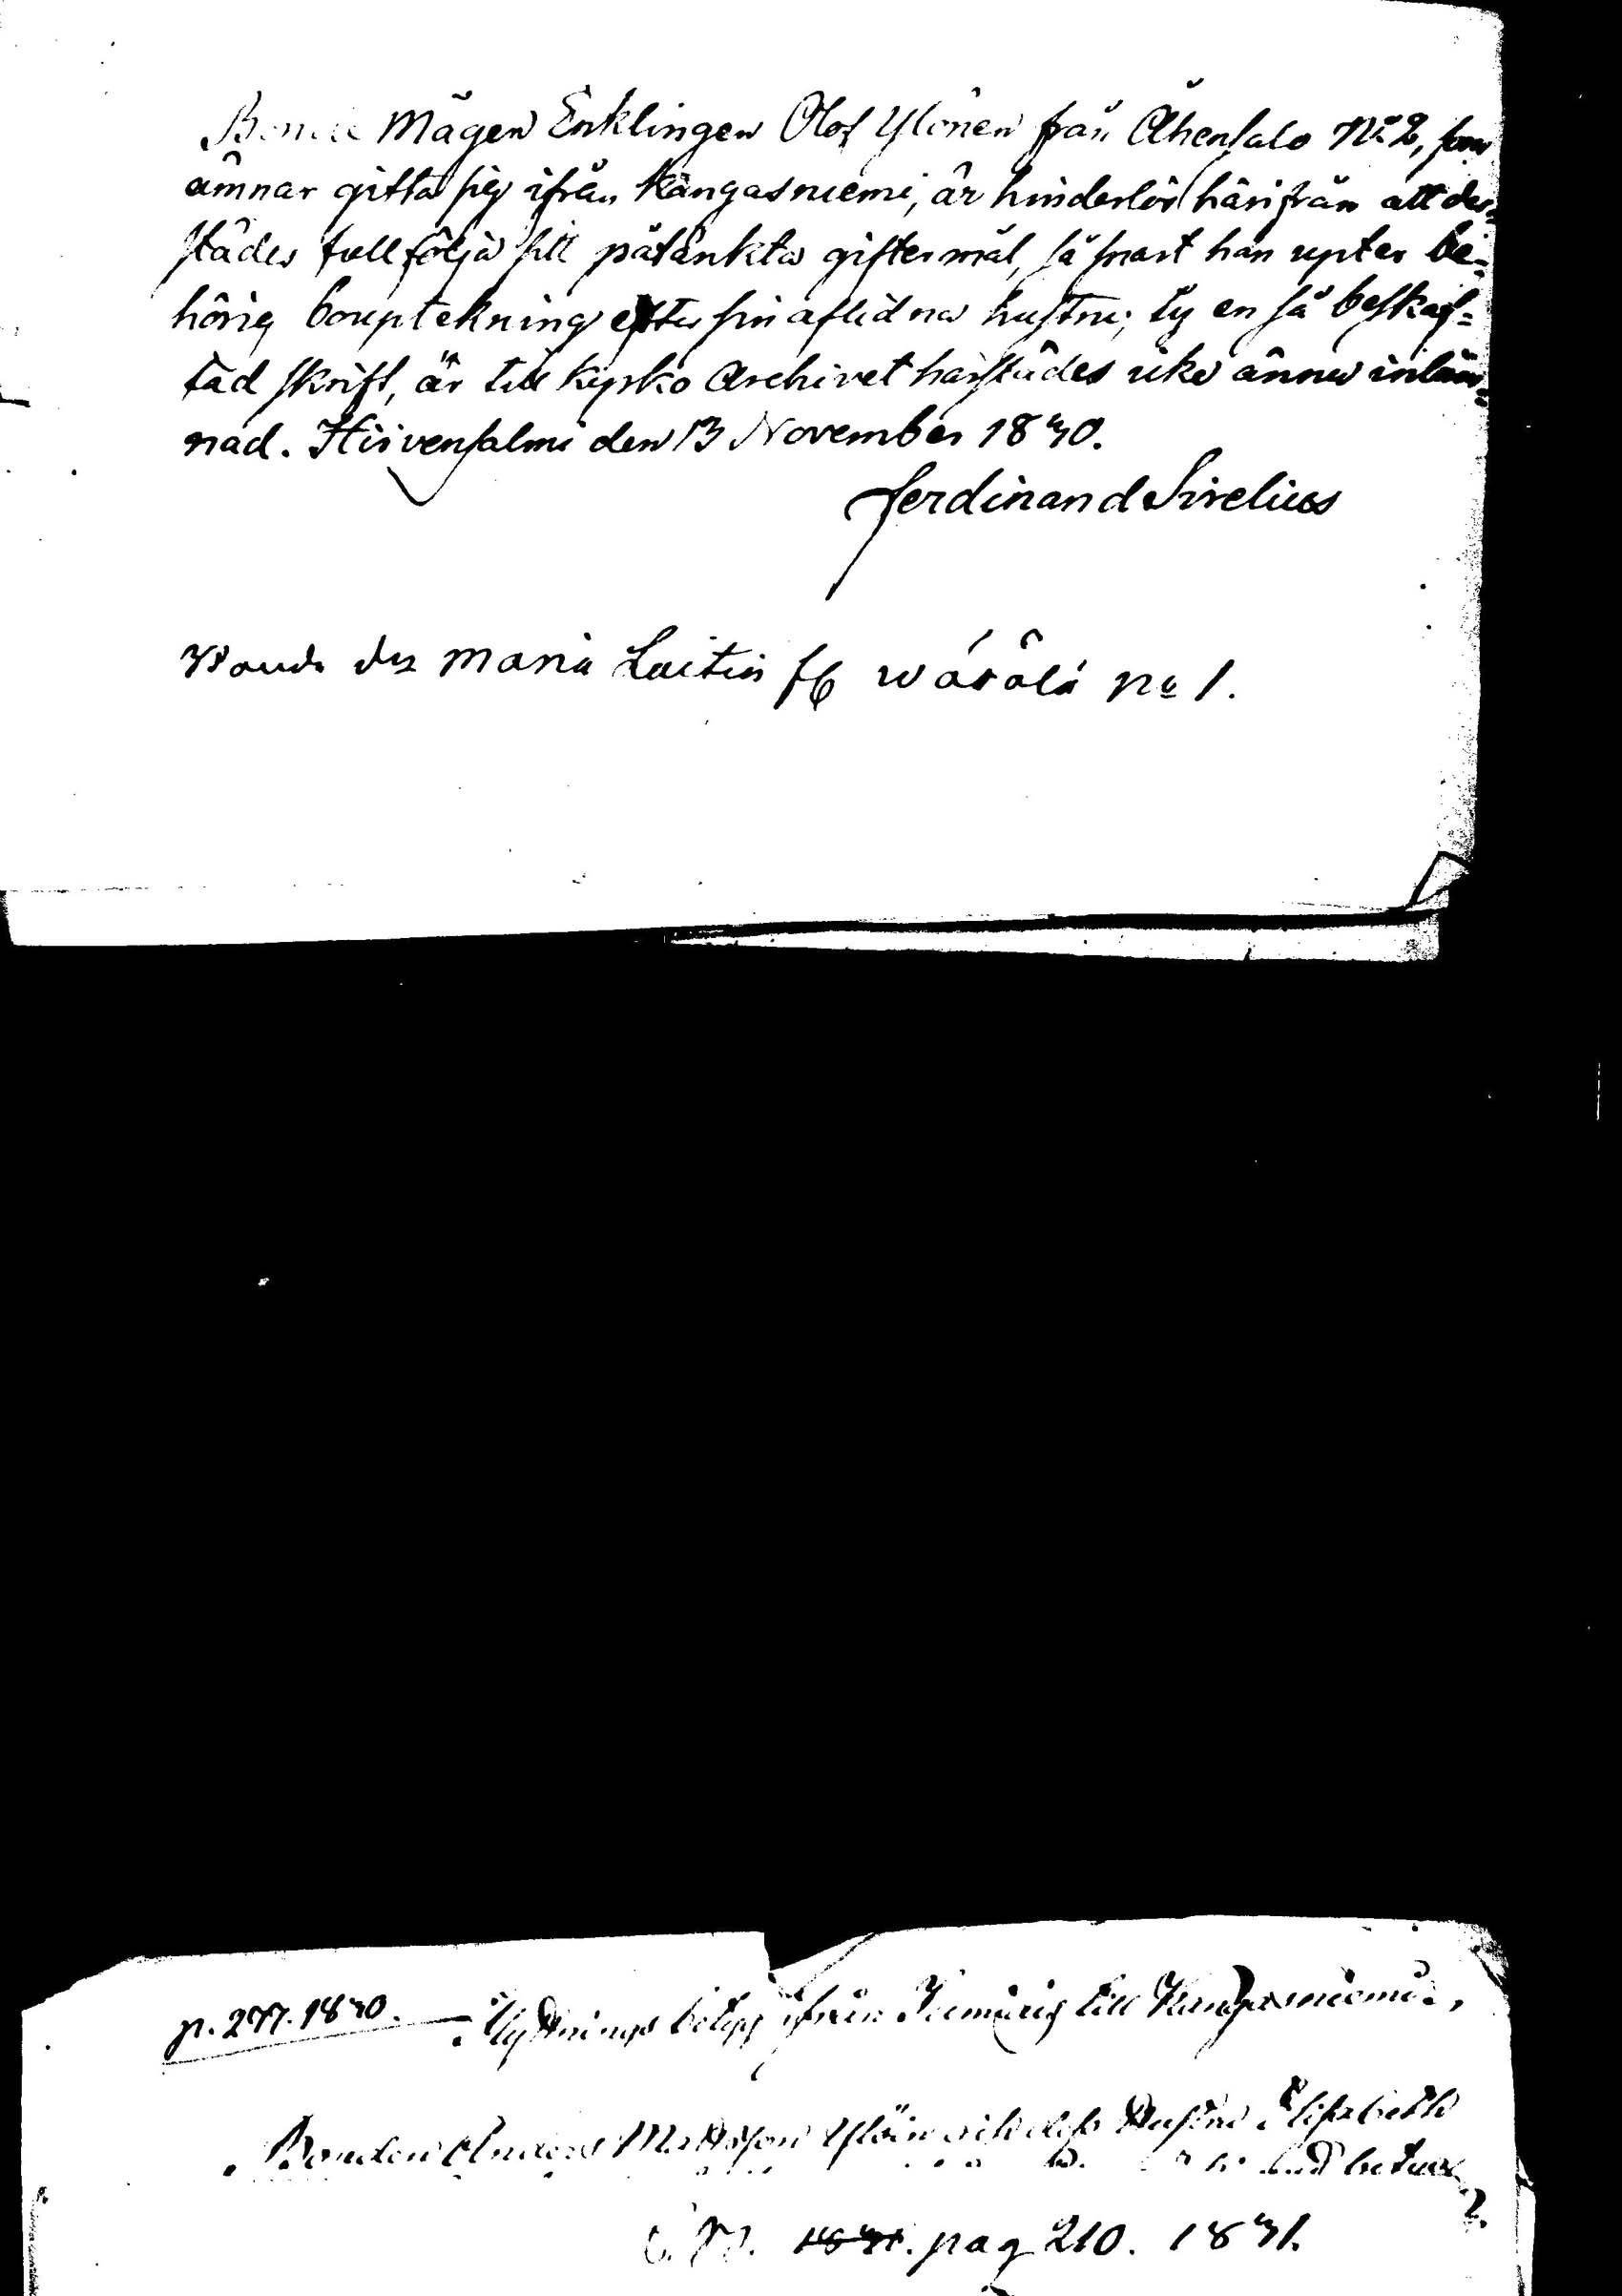 Bonde Mågen Enklingen Olof Ylönen från Ähensalo No 2, som
ämnar gifta sig ifrån Kangasniemi, är hinderlös härifrån att der-
städes fullfölja sitt påtänkta giftermål, så snart han upter be-
hörig bouptekning efter sin aflidna hustru; ty en så beskaf-
fad skrift, är till Kyrko Archivet härstädes icke ännu inläm-
nad. Hirvensalmi den 13 November 1830.
Ferdinand Sirelius
Bonde dr Maria Laitin fr Wäsälä No 1.
p. 277. 1830. Flyttnings betyg ifrån till Kangasniemi.,
Bonden Anders Mattsson Ylöin och dess Hustru Elisabeth
betval
1831. pag 210. 1831.